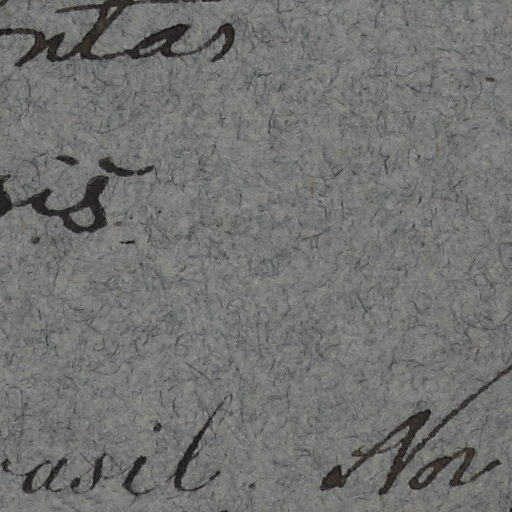 ntas
is
rasil. Nov